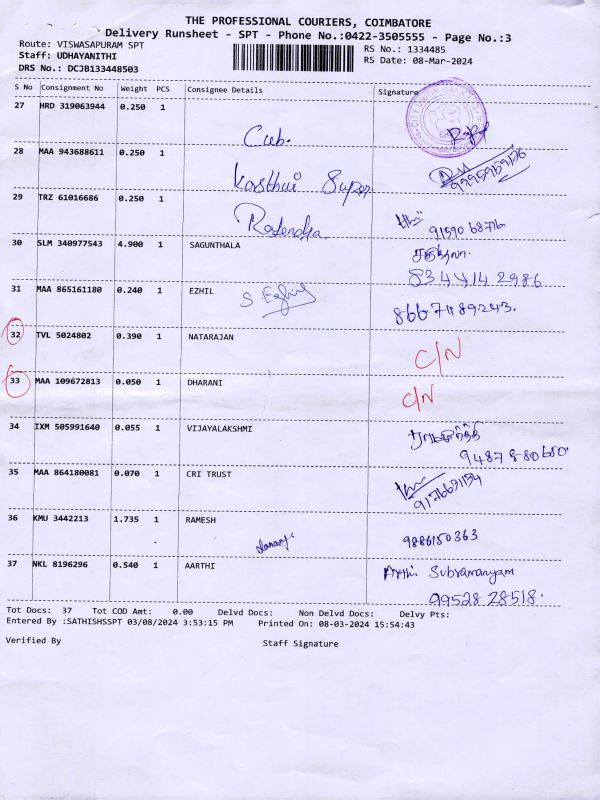 THE PROFESSIONAL COURIERS, COIMBATORE
Delivery Runsheet - SPT - Phone No.:0422-3505555 - Page No.:3
Route: VISWASAPURAM SPT
Staff: UDHAYANITHI
DRS No.: DCJB133448503
RS No.: 1334485
RS Date: 08-Mar-2024
S No Consignment No Weight PCS Consignee Details Signature
27 HRD 319063944 0.250 1
Cub.
28 MAA 943688611 0.250 1
Kasthuri Super
29 TRZ 61016686 0.250 1
Rajendra
91590 68716
30 SLM 340977543 4.900 1 SAGUNTHALA
சகுந்தலா
834 414 2986
31 MAA 865161180 0.240 1 EZHIL S. Ezhil
8667489243.
32 TVL 5024802 0.390 1 NATARAJAN
C/N
33 MAA 109672813 0.050 1 DHARANI
C/N
34 IXM 505991640 0.055 1 VIJAYALAKSHMI
9487880680
35 MAA 864180081 0.070 1 CRI TRUST
36 KMU 3442213 1.735 1 RAMESH
9886150363
37 NKL 8196296 0.540 1 AARTHI
Arthi Subramanyam
99528 28518.
Tot Docs: 37 Tot COD Amt: 0.00 Delvd Docs: Non Delvd Docs: Delvy Pts:
Entered By :SATHISHSSPT 03/08/2024 3:53:15 PM Printed On: 08-03-2024 15:54:43
Verified By Staff Signature